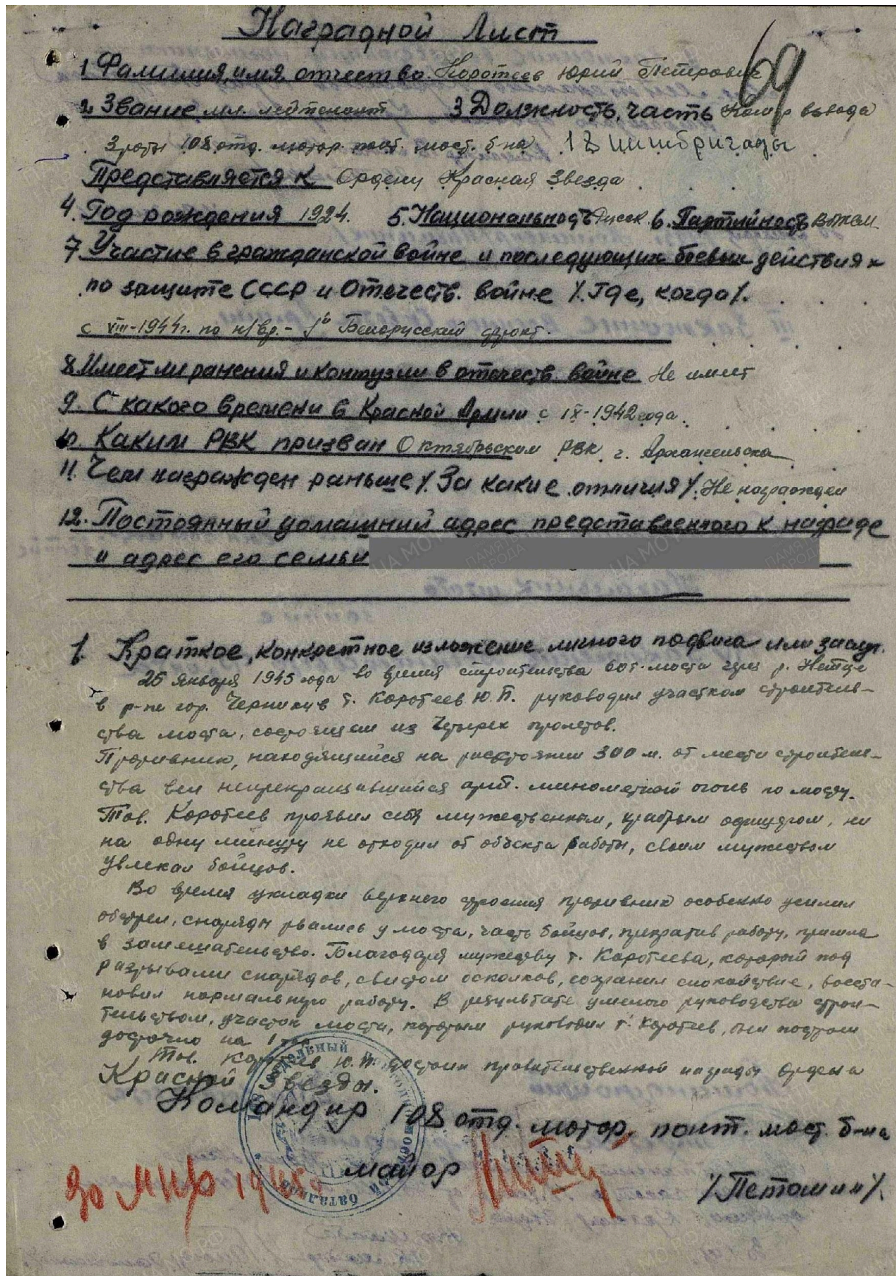 Наградной Лист
69
1. Фамилия, имя отчество Коротеев Юрий Петрович
2. Звание мл. лейтенант 3. Должность, часть Комдр взвода
3 роты 108 отд. мотор. понт. мост. б-на
Представляется к Ордену Красная Звезда
4. Год рождения 1924. 5. Национальность Русск. 6. Партийность ВЛКСМ
7. Участие в гражданской войне и последующих боевых действиях
по защите СССР и Отечеств. войне /. Где, когда /.
с VIII-1944г. по н/вр. - 1й Белорусский фронт.
8. Имеет ли ранения и контузии в отечеств. войне Не имеет
9. С какого времени в Красной Армии с IX-1942 года.
10. Каким РВК призван Октябрьским РВК г. Архангельска
11. Чем награжден раньше /. За какие отличия /. Не награжден
12. Постоянный домашний адрес представленного к награде
и адрес его семьи
1. Краткое, конкретное изложение личного подвига или заслуг.
25 января 1945 года во время строительства мота через р. Нетце
в р-не гор. т. Коротеев Ю.П. руководил участком строитель-
ства моста, состоящем из четырех пролетов.
Противник, находящийся на расстоянии 300 м. от места строитель-
ства вел непрекращавшийся арт. минометный огонь по мосту.
Тов. Коротеев проявил себя мужественным, храбрым офицером, ни
на одну минуту не отходил от объекта работы, своим мужеством
увлекал бойцов.
Во время укладки верхнего строения противник особенно усилил
обстрел, снаряды рвались у моста, часть бойцов, прекратив работу, пришла
в замешательство. Благодаря мужеству т. Коротеева, который под
разрывами снарядов, свистом осколков, сохраняя спокойствие, восста-
новил нормальную работу. В результате умелого руководства строи-
тельством, участок моста, которым руководил т. Коротеев, был построен
досрочно на 1
Тов. Коротеев Ю.П. достоин правительственной награды Ордена
Красной Звезды.
Командир 108 отд. мотор. понт. мост. б-на
майор /Петошин/.
30 МАР 1945